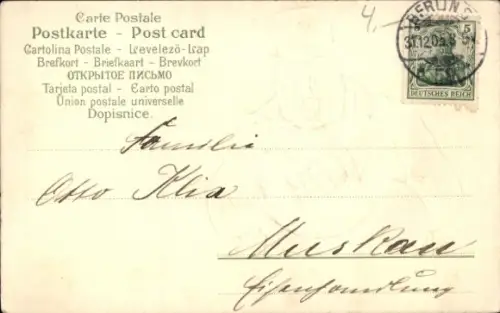 Carte Postale
Postkarte - Post card
Cartolina Postale - Levelező-Lap
Brefkort - Briefkaart - Brevkort
ОТКРЫТОЕ ПИСЬМО
Tarjeta postal - Carto postal
Union postale universelle
Dopisnice.
4.-
BERLIN
31.12.05.
5
DEUTSCHES REICH
Familie
Otto Klix
Muskau
Eisenhandlung